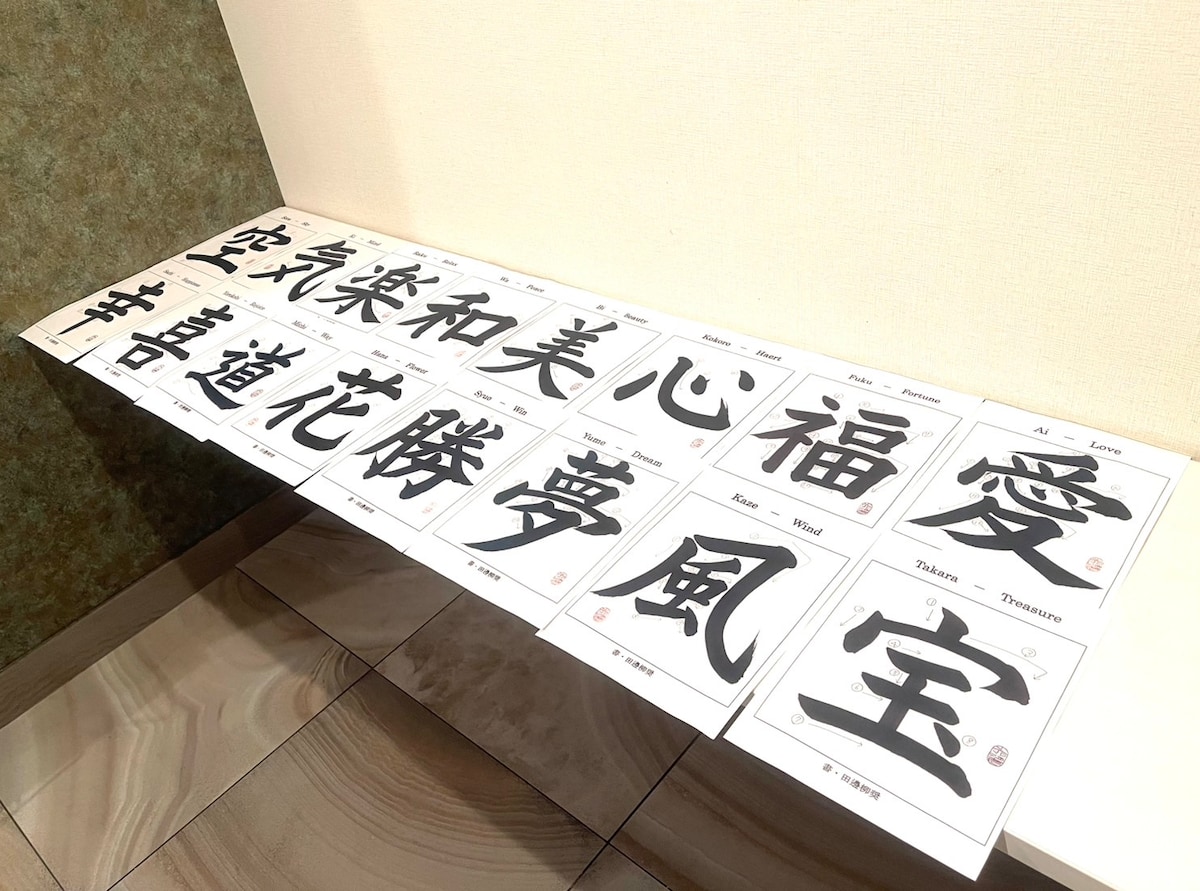 Sora － Sky
空
Ki － Mind
気
Raku － Relax
楽
Wa － Peace
和
Bi － Beauty
美
Kokoro － Haert
心
Fuku － Fortune
福
Ai － Love
愛
幸
喜
Michi － Way
道
Hana － Flower
花
Syou － Win
勝
Yume － Dream
夢
Kaze － Wind
風
Takara － Treasure
宝
① ② ④ ⑥ ⑦ ⑧